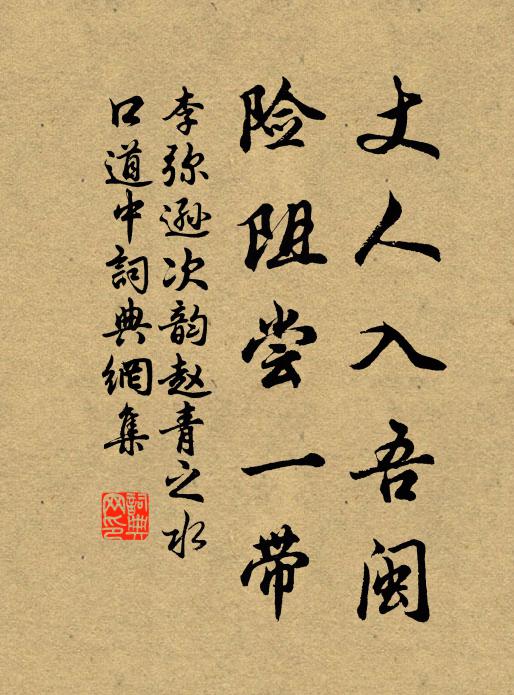 丈人入吾闽
险阻尝一带
李弥逊次韵赵青之水
口道中詞典網集
詞典
网印